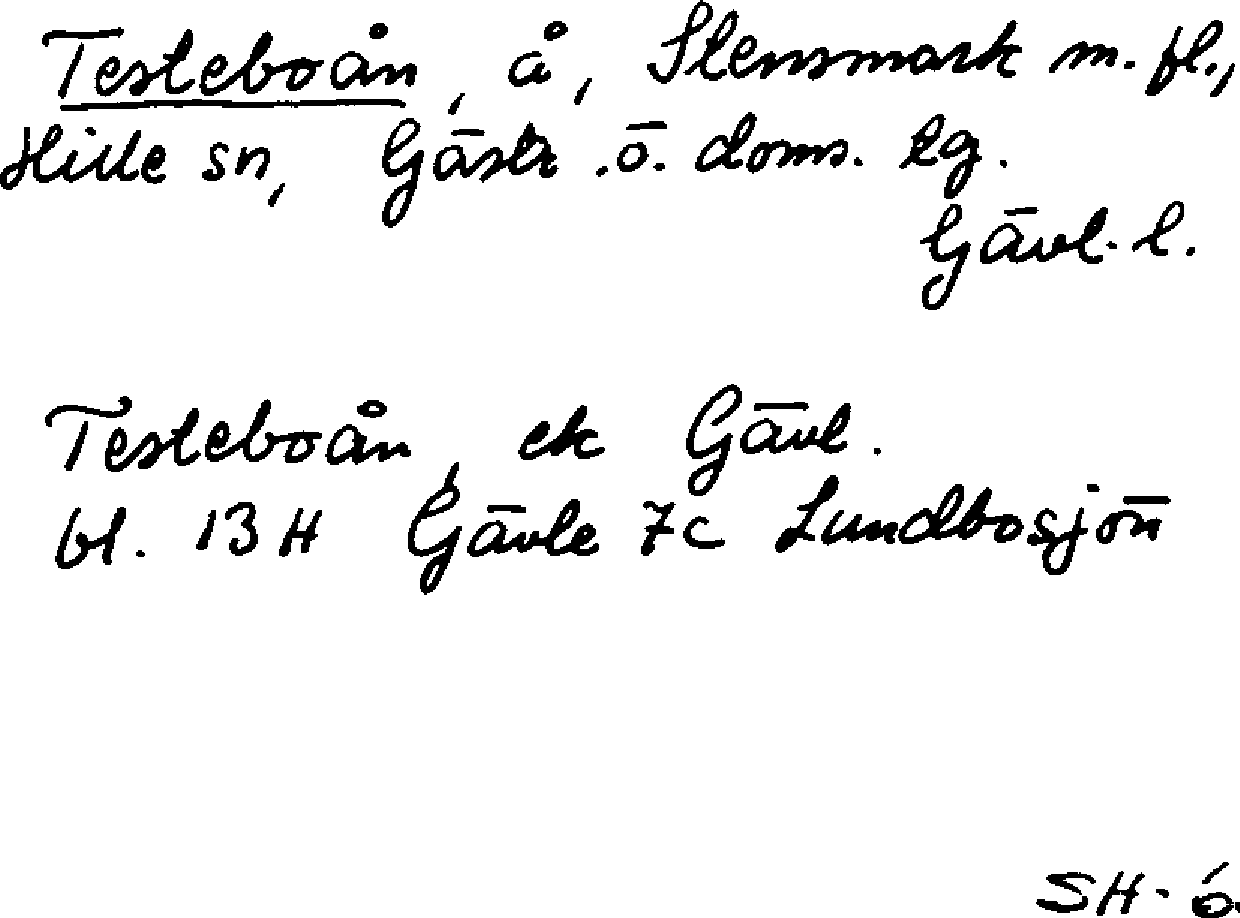 Testeboån, å, Stensmark m. fl.,
Hille sn, Gästr. ö. doms. tg.
Gävl. l.
Testeboån, ek Gävl.
bl. 13H Gävle 7c Lundbosjön
SH. ó.